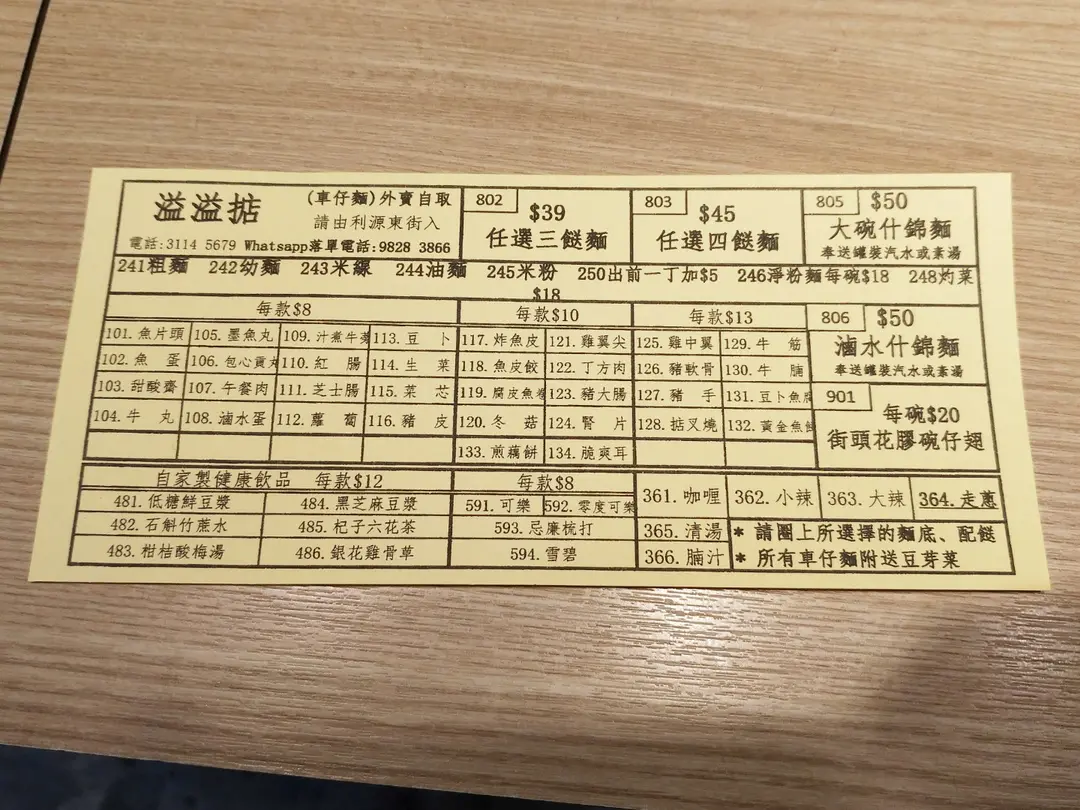 溢溢掂 (車仔麵)外賣自取
請由利源東街入
電話:3114 5679 Whatsapp落單電話:9828 3866
802 $39
任選三餸麵
803 $45
任選四餸麵
805 $50
大碗什錦麵
奉送罐裝汽水或素湯
241粗麵 242幼麵 243米線 244油麵 245米粉 250出前一丁加$5 246淨粉麵每碗$18 248灼菜
$18
每款$8
101.魚片頭 105.墨魚丸 109.汁煮牛 113.豆卜
102.魚蛋 106.包心貢丸 110.紅腸 114.生菜
103.甜酸齋 107.午餐肉 111.芝士腸 115.菜芯
104.牛丸 108.滷水蛋 112.蘿蔔 116.豬皮
每款$10
117.炸魚皮 121.雞翼尖
118.魚皮餃 122.丁方肉
119.腐皮魚卷 123.豬大腸
120.冬菇 124.腎片
133.煎藕餅 134.脆爽耳
每款$13
125.雞中翼 129.牛筋
126.豬軟骨 130.牛腩
127.豬手 131.豆卜魚
128.掂叉燒 132.黃金魚
806 $50
滷水什錦麵
奉送罐裝汽水或素湯
901 每碗$20
街頭花膠碗仔翅
自家製健康飲品 每款$12
481.低糖鮮豆漿 484.黑芝麻豆漿
482.石斛竹蔗水 485.杞子六花茶
483.柑桔酸梅湯 486.銀花雞骨草
每款$8
591.可樂 592.零度可樂
593.忌廉梳打
594.雪碧
361.咖喱 362.小辣 363.大辣 364.走蔥
365.清湯
366.腩汁
* 請圈上所選擇的麵底、配餸
* 所有車仔麵附送豆芽菜